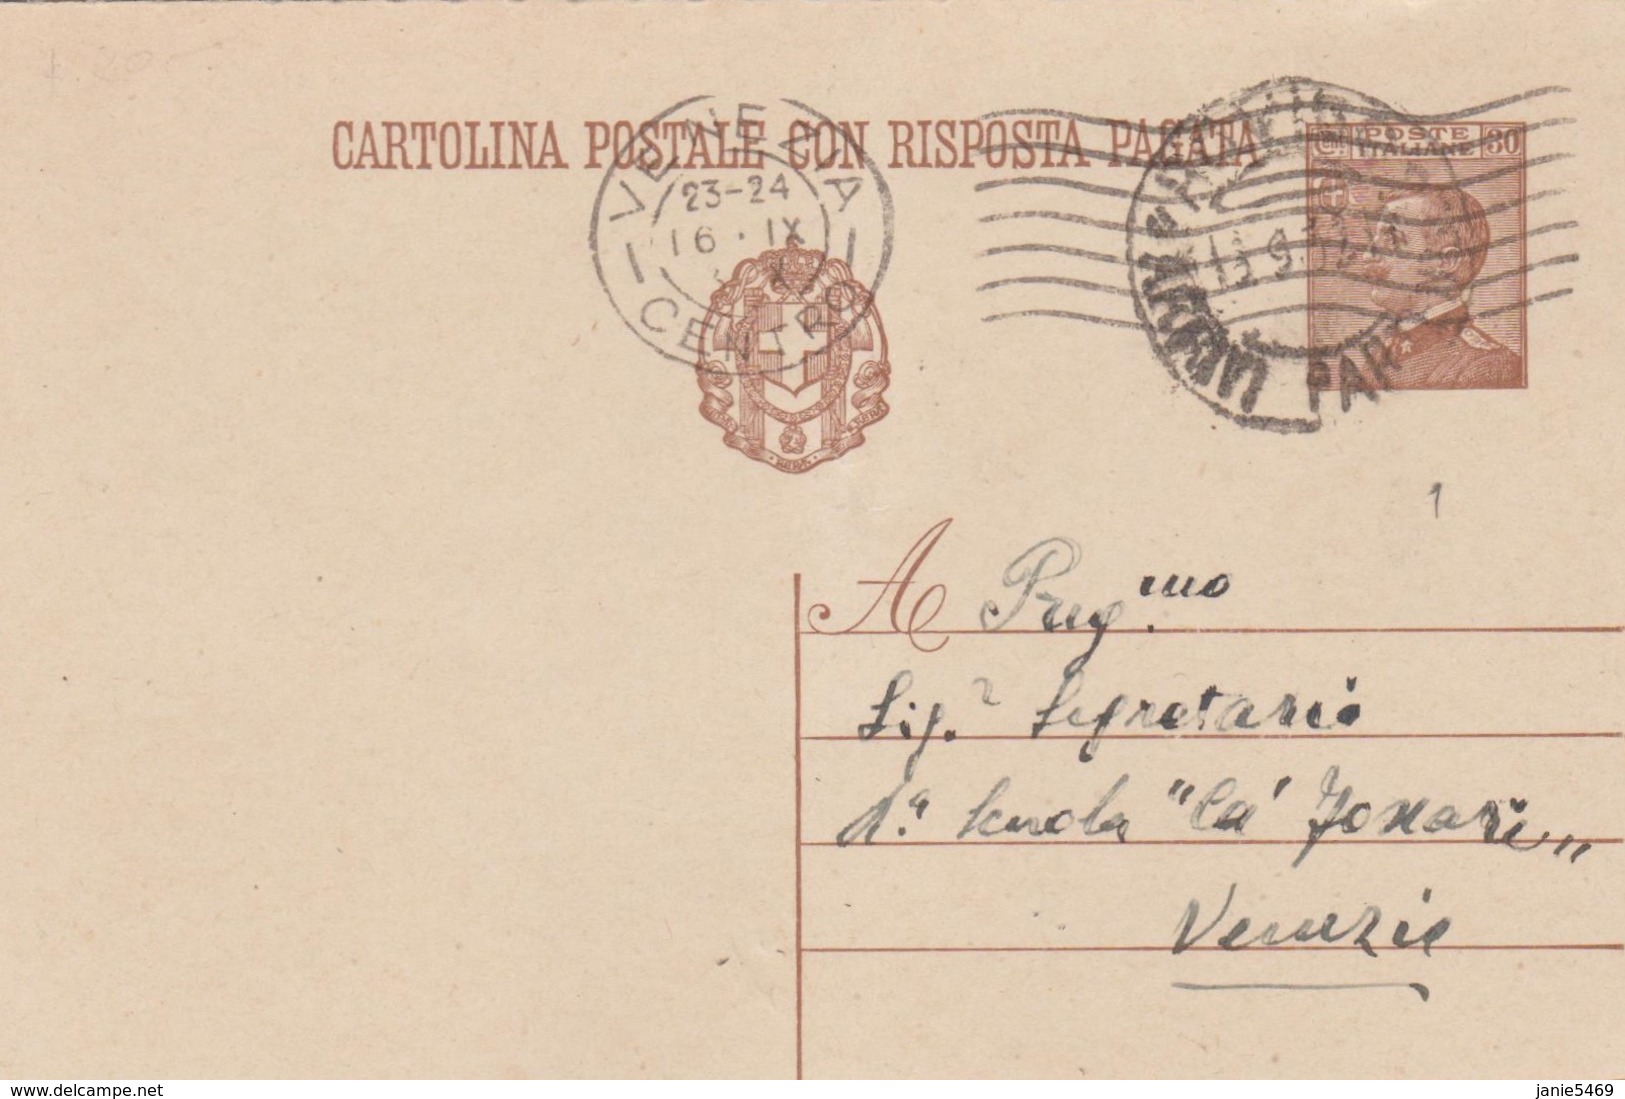 CARTOLINA POSTALE CON RISPOSTA PAGATA
POSTE
ITALIANE
30
VENEZIA
23-24
16 · IX
CENTRO
1
A Preg.mo
Sig.r Segretario
Scuola "Cà Foscari"
Venezia
www.delcampe.net
janie5469